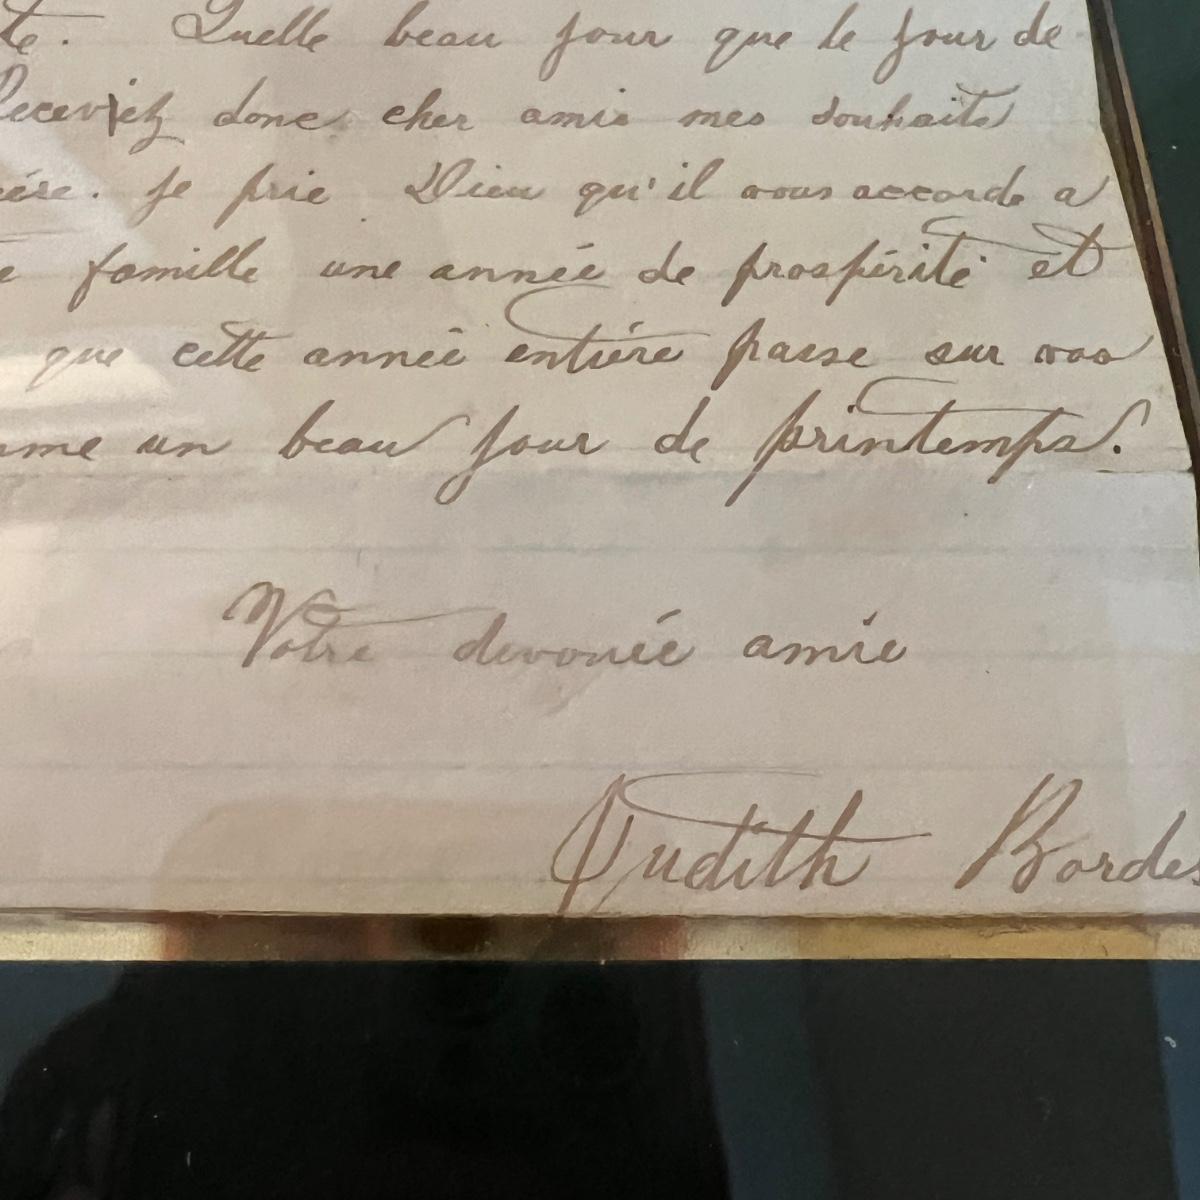 te. Quelle beau jour que le jour de
Receviez donc cher amie mes souhaits
ère. Je prie Dieu qu'il vous accorde a
e famille une année de prospérité et
que cette année entière passe sur vos
mme un beau jour de printemps.
Votre devouée amie
Judith Bordes